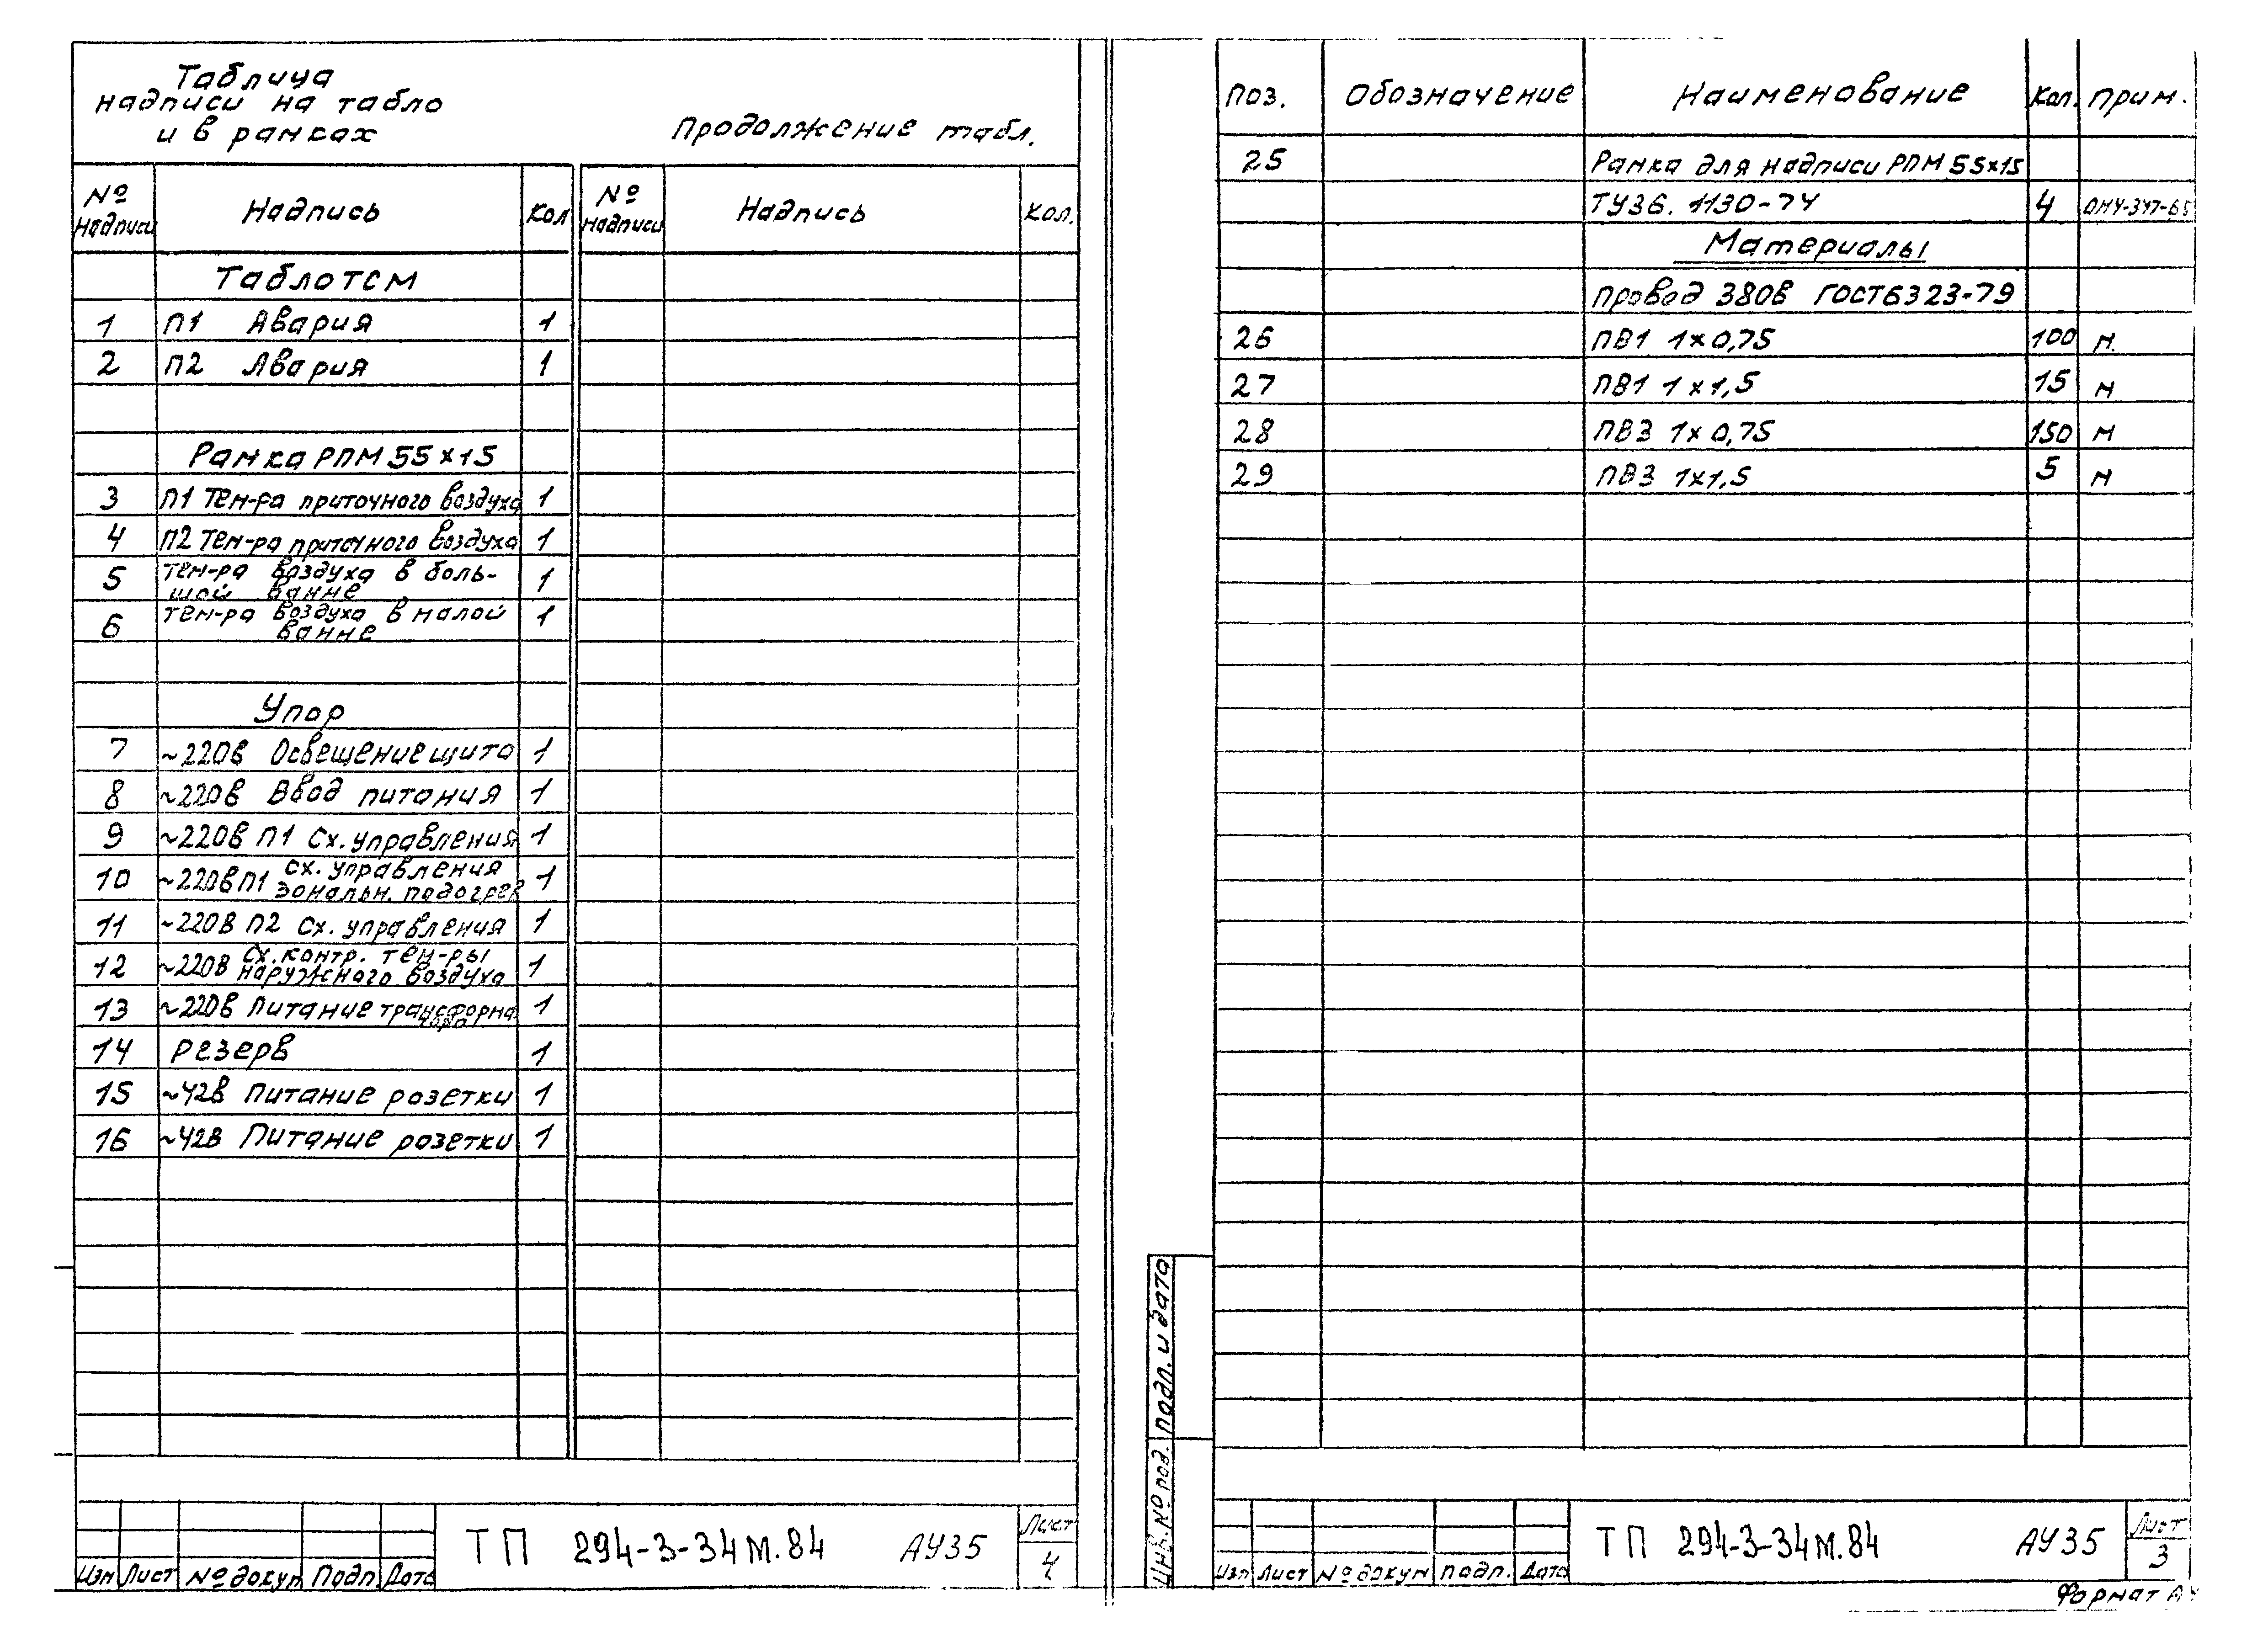 Таблица
надписи на табло
и в рамках
Продолжение табл.
№ надписи Надпись Кол № надписи Надпись Кол.
Табло ТСМ
1 П1 Авария 1
2 П2 Авария 1
Рамка РПМ 55×15
3 П1 Тем-ра приточного воздуха 1
4 П2 Тем-ра приточного воздуха 1
5 тем-ра воздуха в боль- 1
шой ванне
6 тем-ра воздуха в малой 1
ванне
Упор
7 ~220в Освещение щита 1
8 ~220в Ввод питания 1
9 ~220в П1 Сх. управления 1
10 ~220в П1 сх. управления 1
зональн. подогрев
11 ~220в П2 Сх. управления 1
12 ~220в сх. контр. тем-ры 1
наружного воздуха
13 ~220в Питание трансформа 1
тора
14 Резерв 1
15 ~42в Питание розетки 1
16 ~42в Питание розетки 1
Изм Лист № докум Подп. Дата
ТП 294-3-34М.84 АУ35
Лист
4
Поз. Обозначение Наименование Кол. Прим.
25 Рамка для надписи РПМ 55×15
ТУ36. 1130-74 4
Материалы
Провод 380в ГОСТ 6323-79
26 ПВ1 1×0,75 100 м.
27 ПВ1 1×1,5 15 м
28 ПВ3 1×0,75 150 м
29 ПВ3 1×1,5 5 м
Инв. № под. Подп. и дата
Изм Лист № докум Подп. Дата
ТП 294-3-34М.84 АУ35
Лист
3
Формат А4